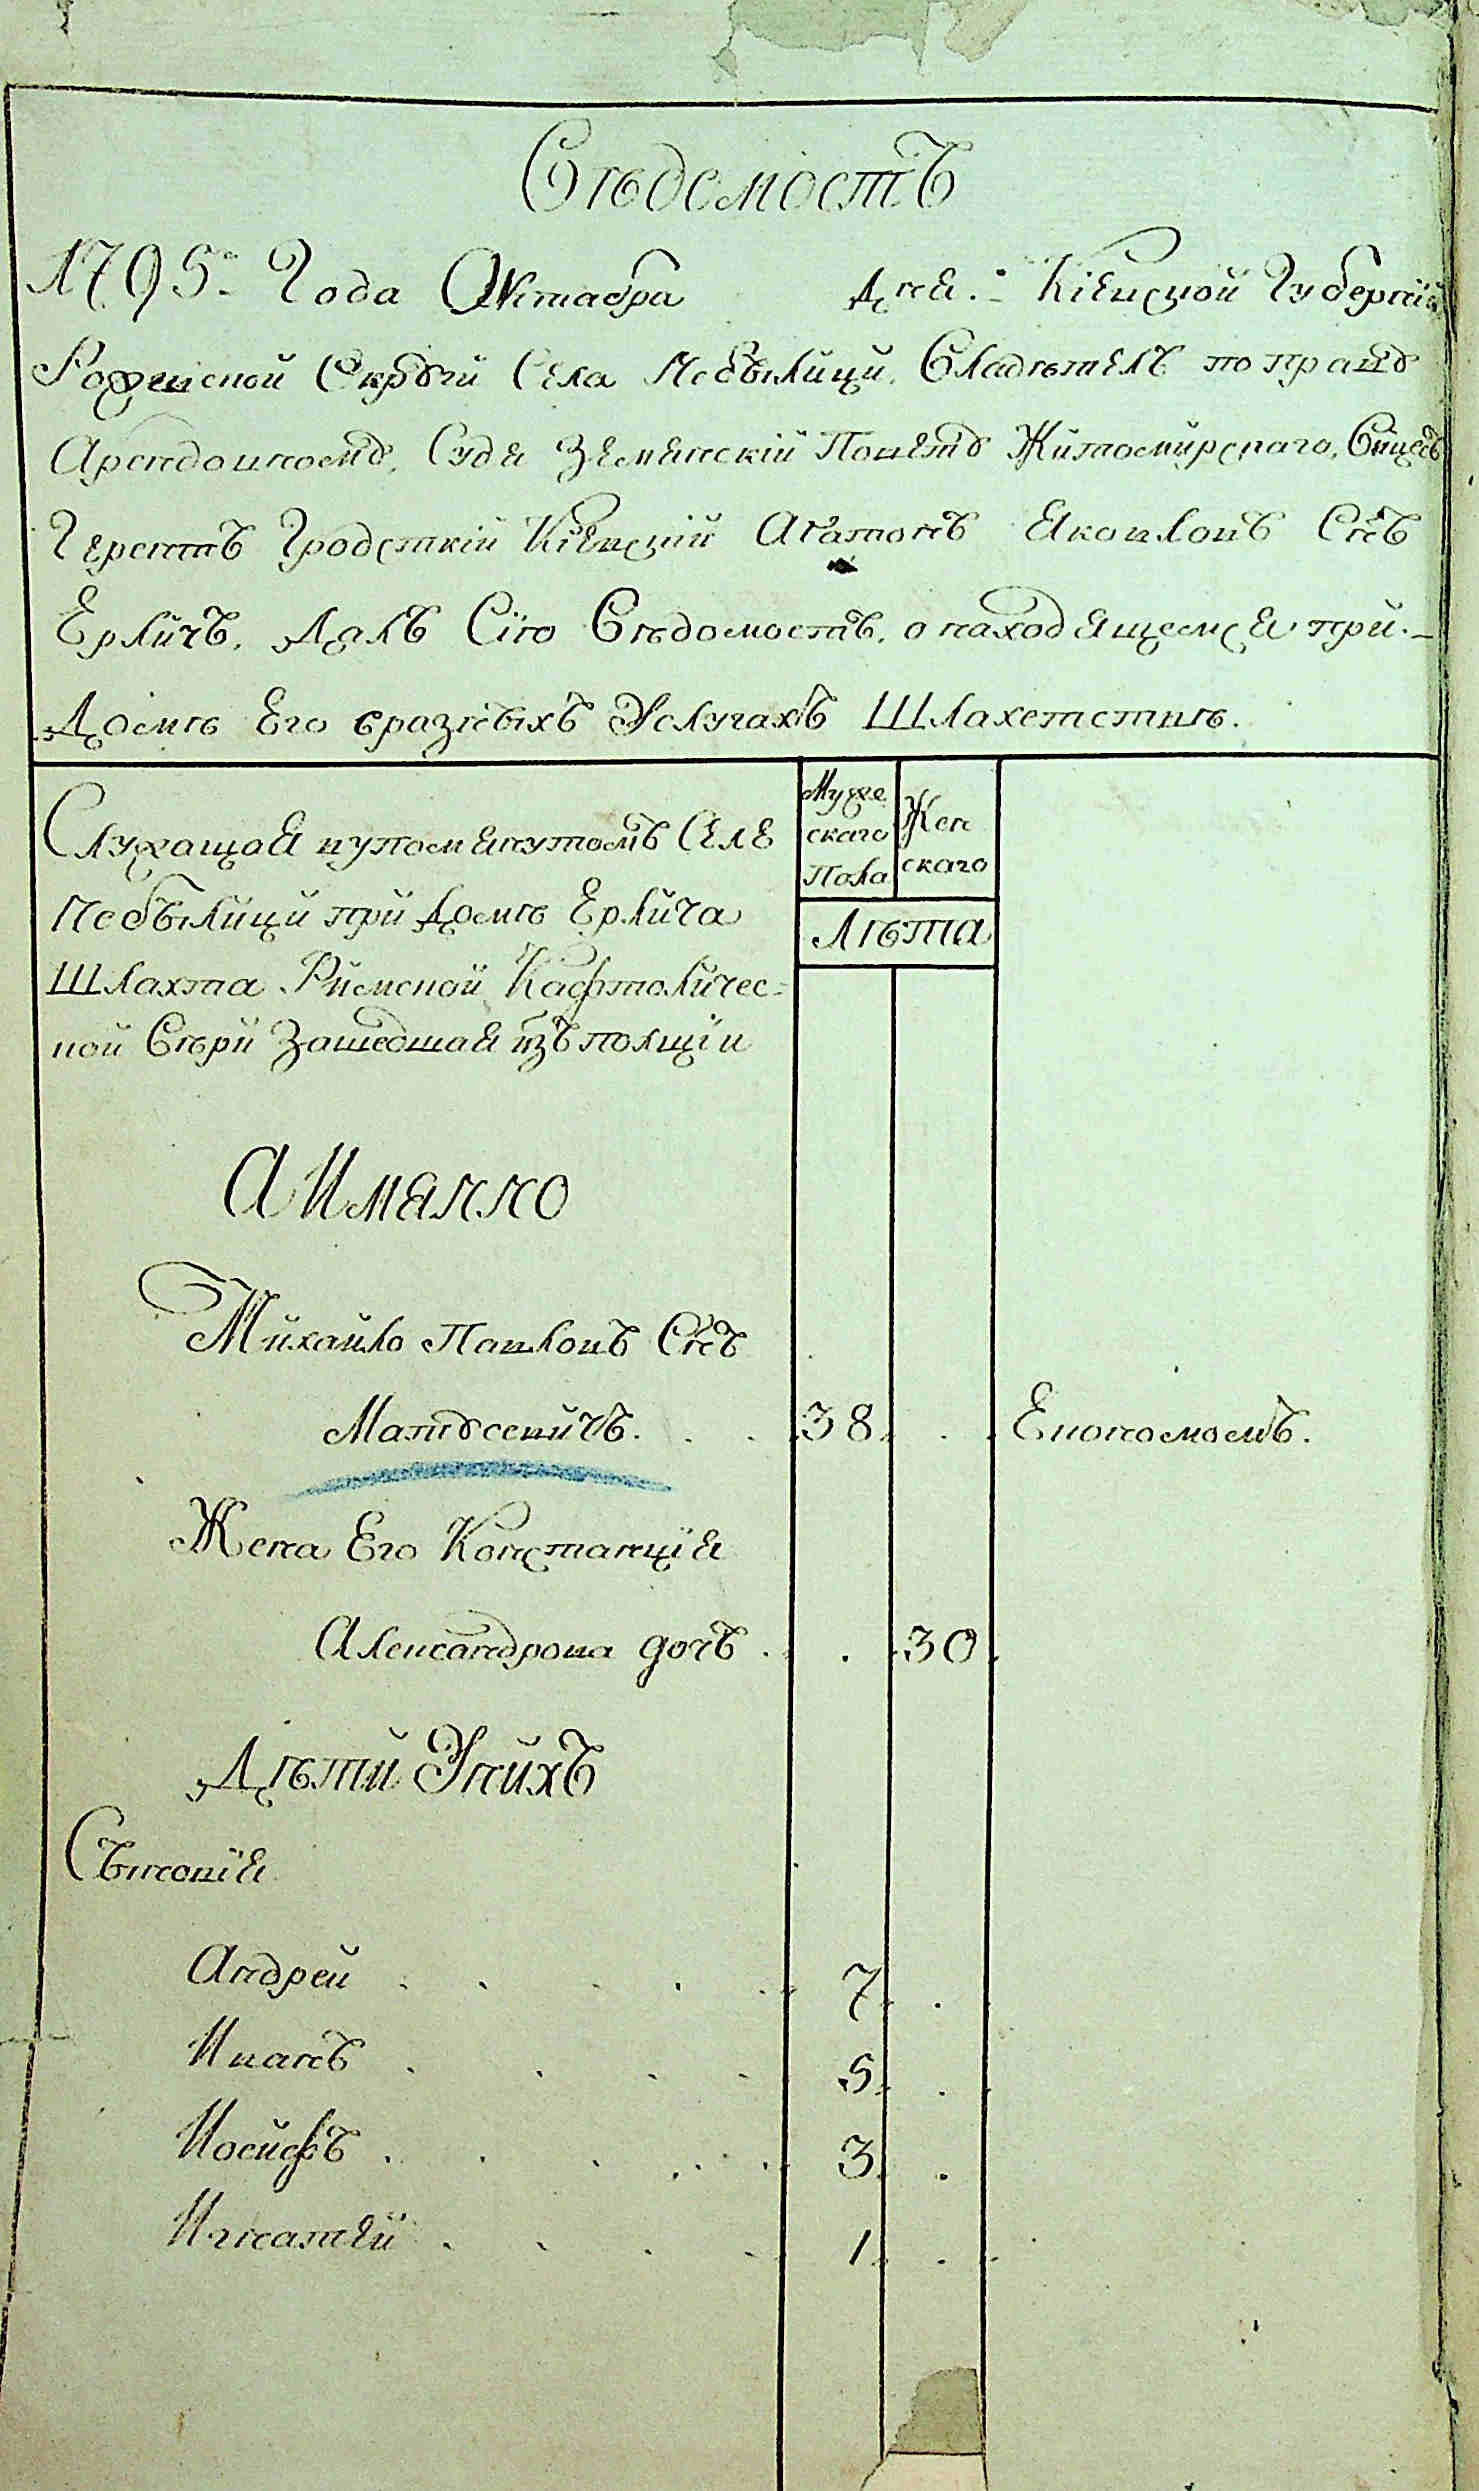 Вѣдемость
1795 Года Октабра Дня. Кіевской Губерній
Рожевской Округи Села Небылици. Владѣтель по праву
Арендовному, Судя Земянскій Повету Житомирскаго, Вице
Герентъ Гродскій Кіевскій Агатонъ Яковловъ Снъ
Ерличъ, Далъ Сію Вѣдомость, о находящемся при
Домѣ Его вразныхъ Услугахъ Шлахетствѣ.
Служащая вупомянутомъ Селе
Небылици при Домѣ Ерлича
Шлахта Римской Кафтоличес-
кой Вѣри Зашедшая изъ полщіи
Муже Жен
скаго скаго
Пола
Лѣта
А Имянно
Михайло Павловъ Снъ
Матусевичъ. 38 Економомъ.
Жена Его Констанція
Александрова дочъ 30
Дѣти Унихъ
Сыновія
Андрей 7
Иванъ 5
Иосифъ 3
Игнатей 1